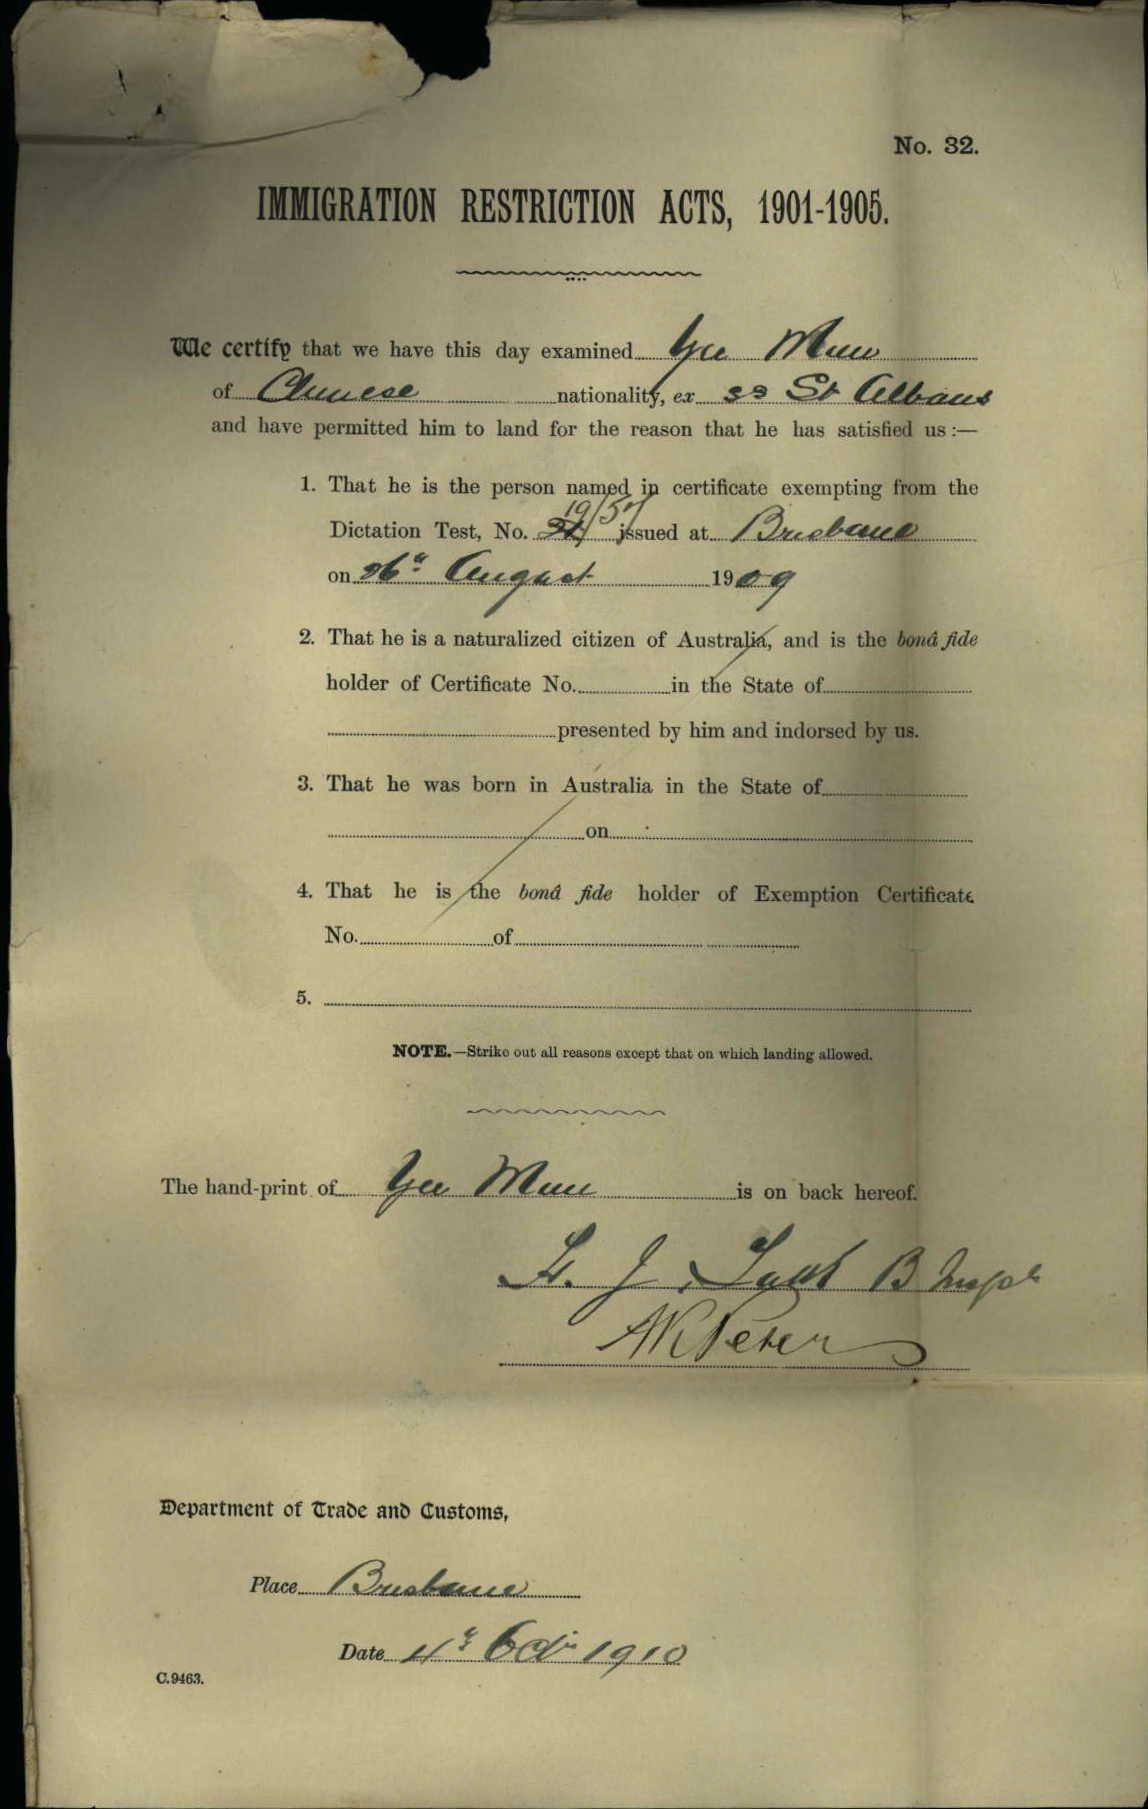 No. 32.
IMMIGRATION RESTRICTION ACTS, 1901-1905.
We certify that we have this day examined Yee Mun
of Chinese nationality, ex ss St Albans
and have permitted him to land for the reason that he has satisfied us :—
1. That he is the person named in certificate exempting from the
19/57
Dictation Test, No. issued at Brisbane
on 26th August 1909
2. That he is a naturalized citizen of Australia, and is the bonâ fide
holder of Certificate No. in the State of
presented by him and indorsed by us.
3. That he was born in Australia in the State of
on
4. That he is the bonâ fide holder of Exemption Certificate
No. of
5.
NOTE.—Strike out all reasons except that on which landing allowed.
The hand-print of Yee Mun is on back hereof.
J. B
AK Peters
Department of Trade and Customs,
Place Brisbane
Date 4th Oct 1910
C.9463.